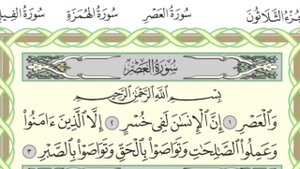 الجُزْءُ الثَّلَاثُونَ سُورَةُ العَصْرِ سُورَةُ الهُمَزَةِ سُورَةُ الفِيلِ
سُورَةُ العَصْرِ
بِسْمِ اللَّهِ الرَّحْمَٰنِ الرَّحِيمِ
وَالْعَصْرِ ١ إِنَّ الْإِنسَانَ لَفِي خُسْرٍ ٢ إِلَّا الَّذِينَ ءَامَنُوا
وَعَمِلُوا الصَّالِحَاتِ وَتَوَاصَوْا بِالْحَقِّ وَتَوَاصَوْا بِالصَّبْرِ ٣